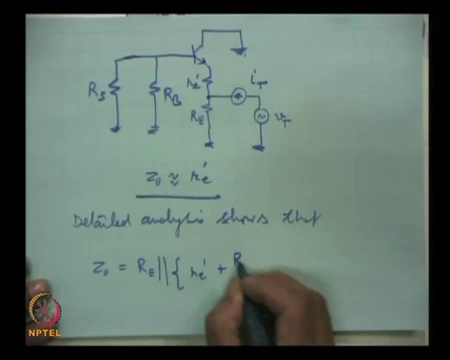 R_S
R_B
r_e'
R_E
i_T
v_T
Z_0 ≈ r_e'
Detailed analysis shows that
Z_0 = R_E || { r_e' + R
NPTEL